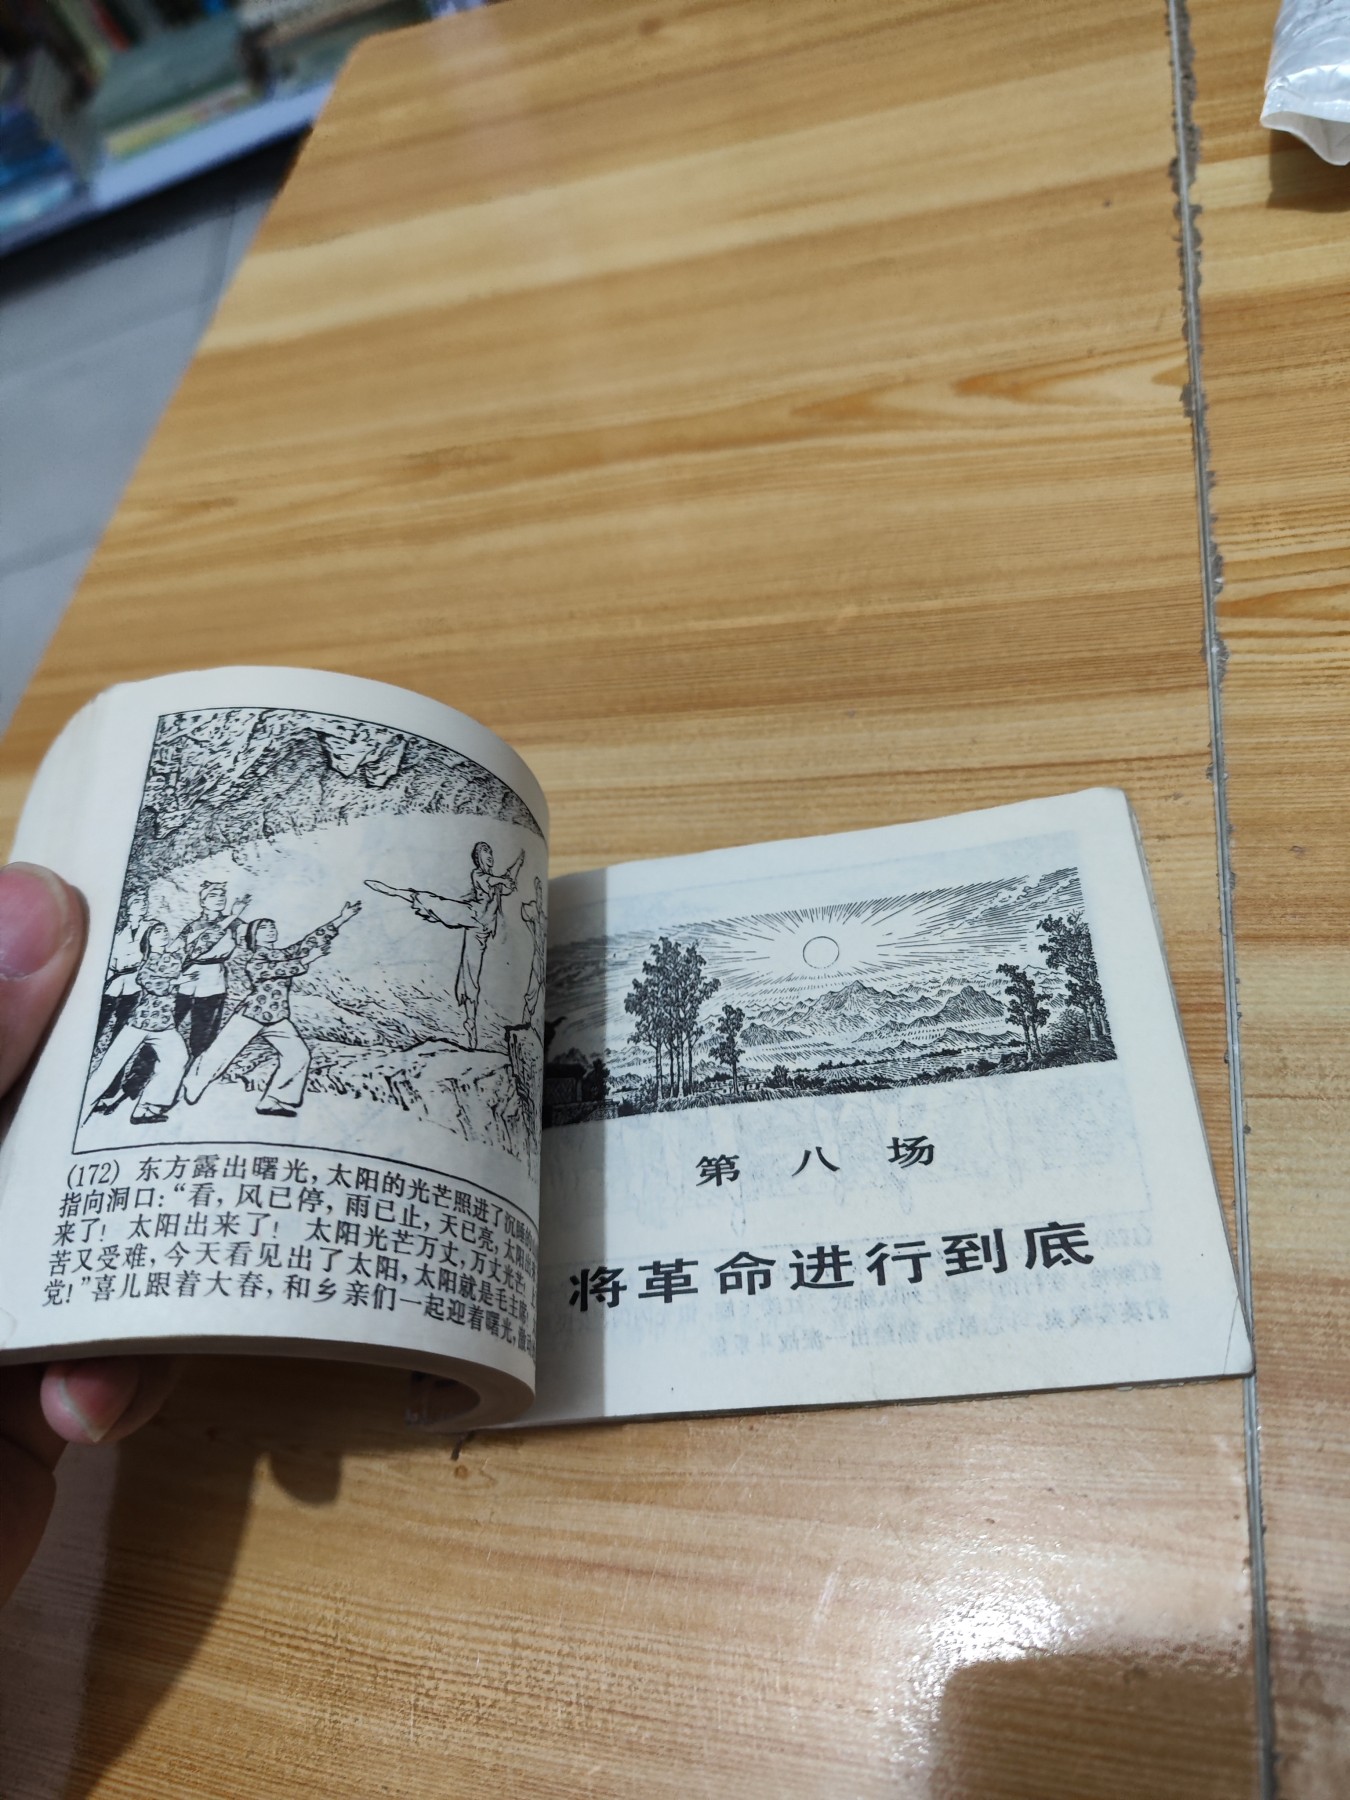 (172) 东方露出曙光，太阳的光芒照进了沉睡的
指向洞口：“看，风已停，雨已止，天已亮，太阳出
来了！太阳出来了！太阳光芒万丈，万丈光芒！
苦又受难，今天看见出了太阳，太阳就是毛主席！
党！”喜儿跟着大春，和乡亲们一起迎着曙光，激动
第八场
将革命进行到底